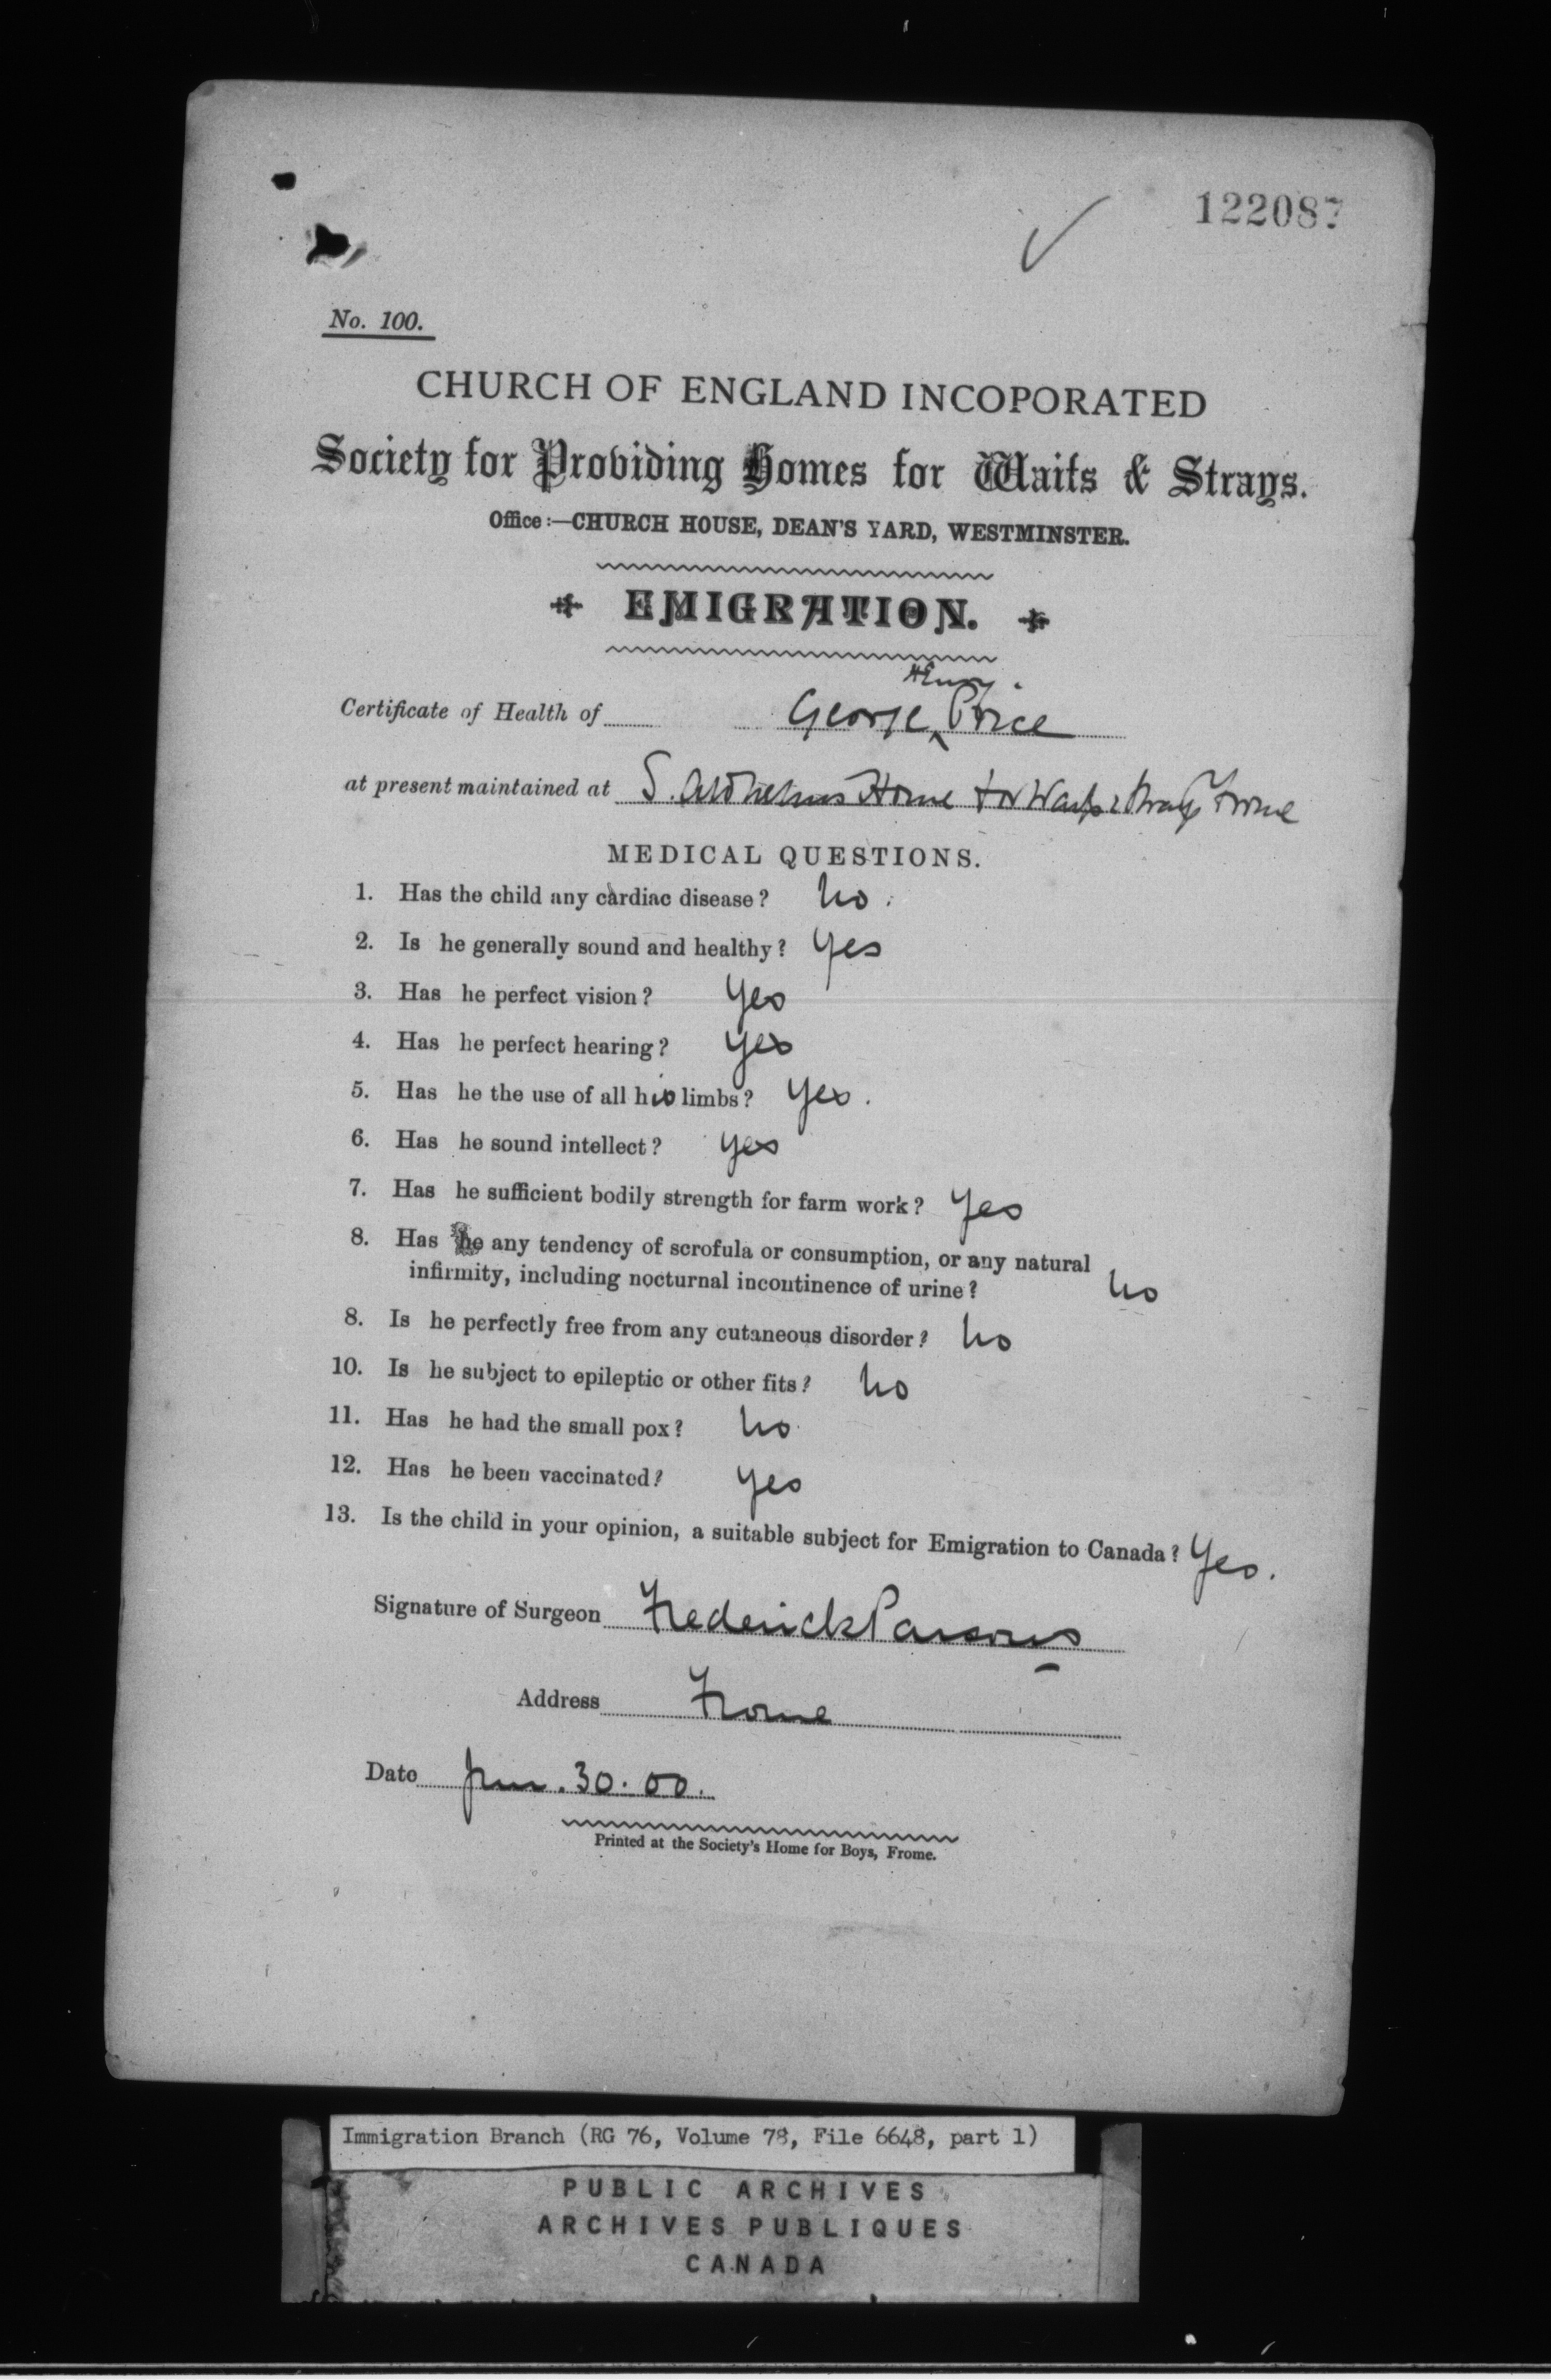 122087
No. 100.
CHURCH OF ENGLAND INCOPORATED
Society for Providing Homes for Waifs & Strays.
Office:—CHURCH HOUSE, DEAN'S YARD, WESTMINSTER.
EMIGRATION.
Henry.
Certificate of Health of George ^ Price
at present maintained at S. Aldhelms Home for Waifs & Strays Frome
MEDICAL QUESTIONS.
1. Has the child any cardiac disease? no.
2. Is he generally sound and healthy? Yes
3. Has he perfect vision? Yes
4. Has he perfect hearing? Yes
5. Has he the use of all his limbs? Yes.
6. Has he sound intellect? Yes
7. Has he sufficient bodily strength for farm work? Yes
8. Has he any tendency of scrofula or consumption, or any natural
infirmity, including nocturnal incontinence of urine? no
8. Is he perfectly free from any cutaneous disorder? no
10. Is he subject to epileptic or other fits? no
11. Has he had the small pox? no
12. Has he been vaccinated? Yes
13. Is the child in your opinion, a suitable subject for Emigration to Canada? Yes.
Signature of Surgeon Frederick Parsons
Address Frome
Date 30.00.
Printed at the Society's Home for Boys, Frome.
Immigration Branch (RG 76, Volume 78, File 6648, part 1)
PUBLIC ARCHIVES
ARCHIVES PUBLIQUES
CANADA